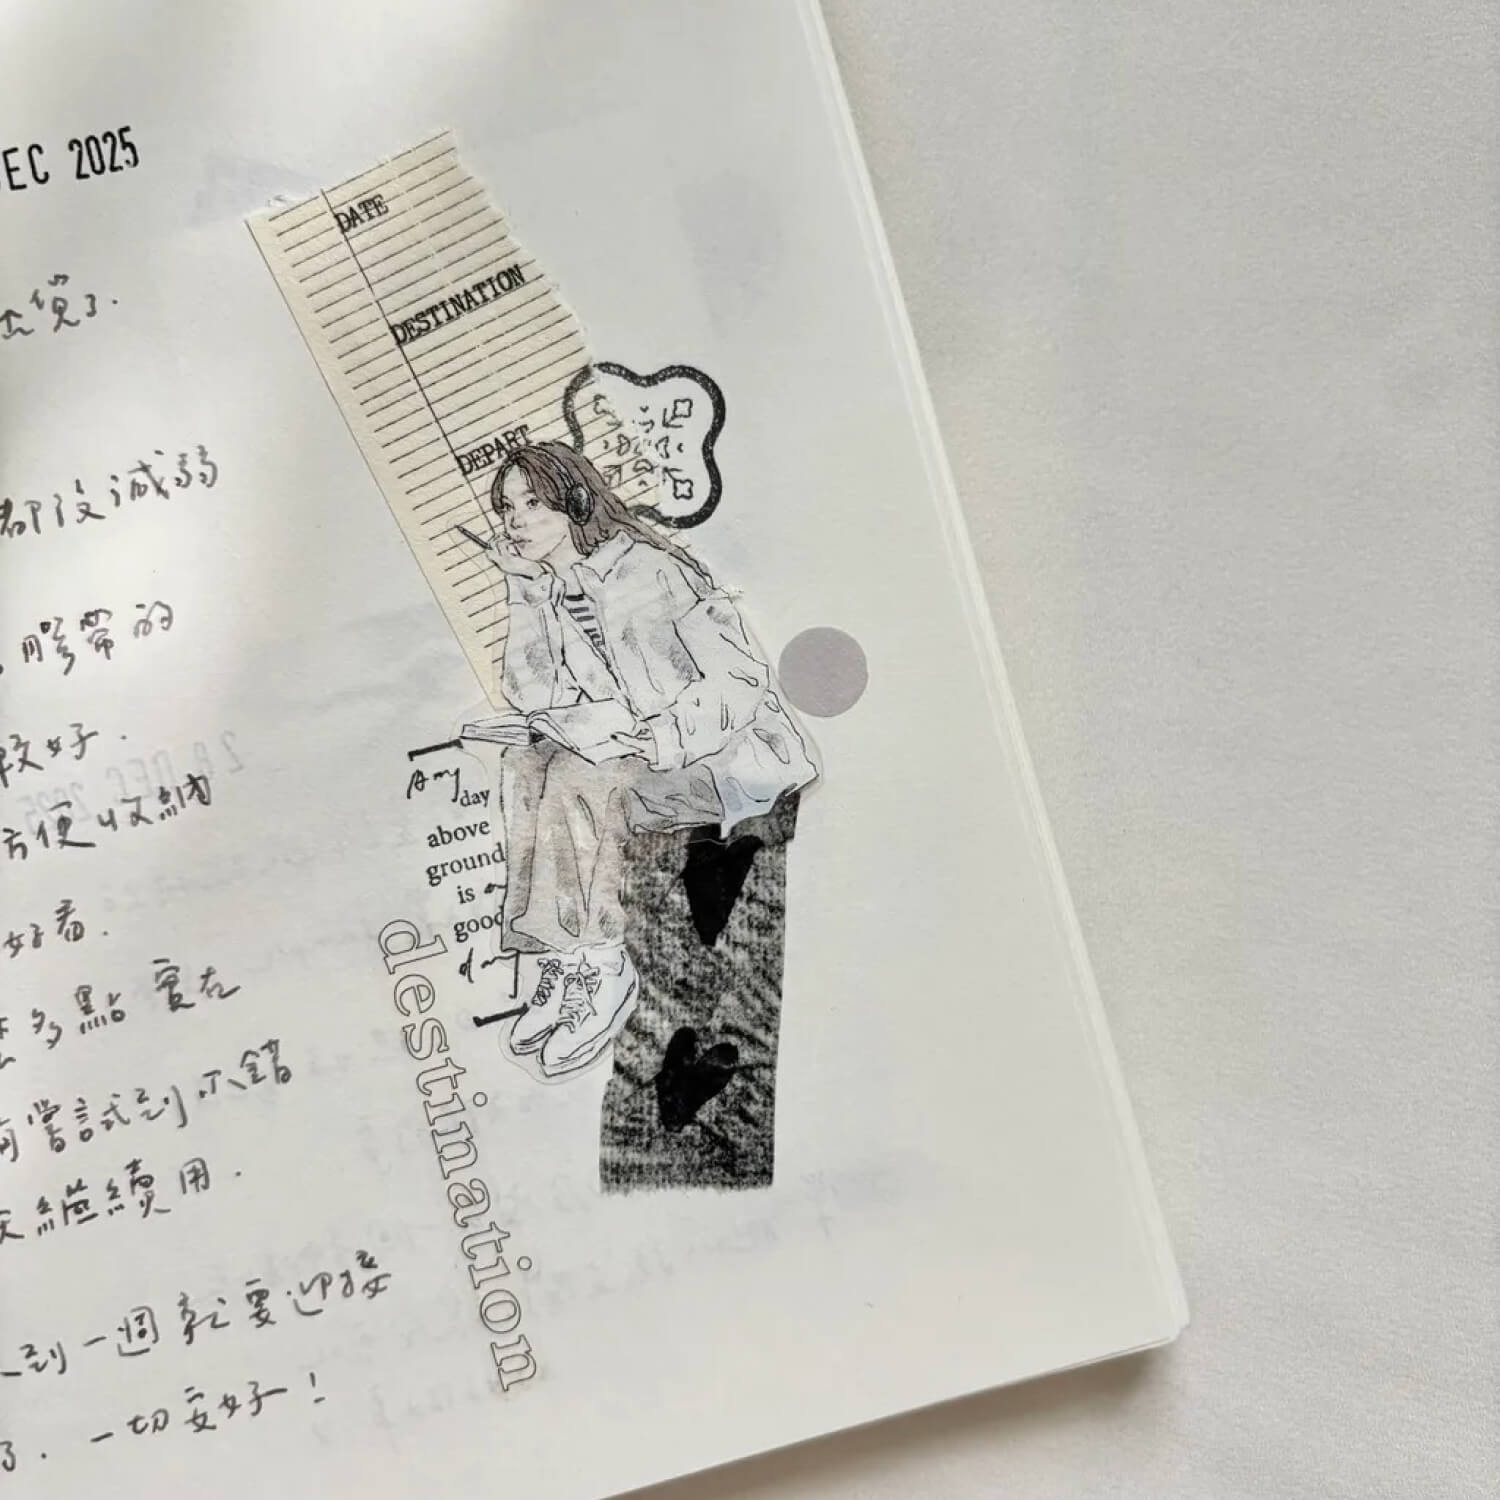 EC 2025
都沒減弱
膠帶的
較好.
方便收納
好看.
多點實在
嘗試到不錯
繼續用.
到一週就要迎接
了. 一切安好!
DATE
DESTINATION
DEPART
Any
day
above
ground
is a
good
day
destination